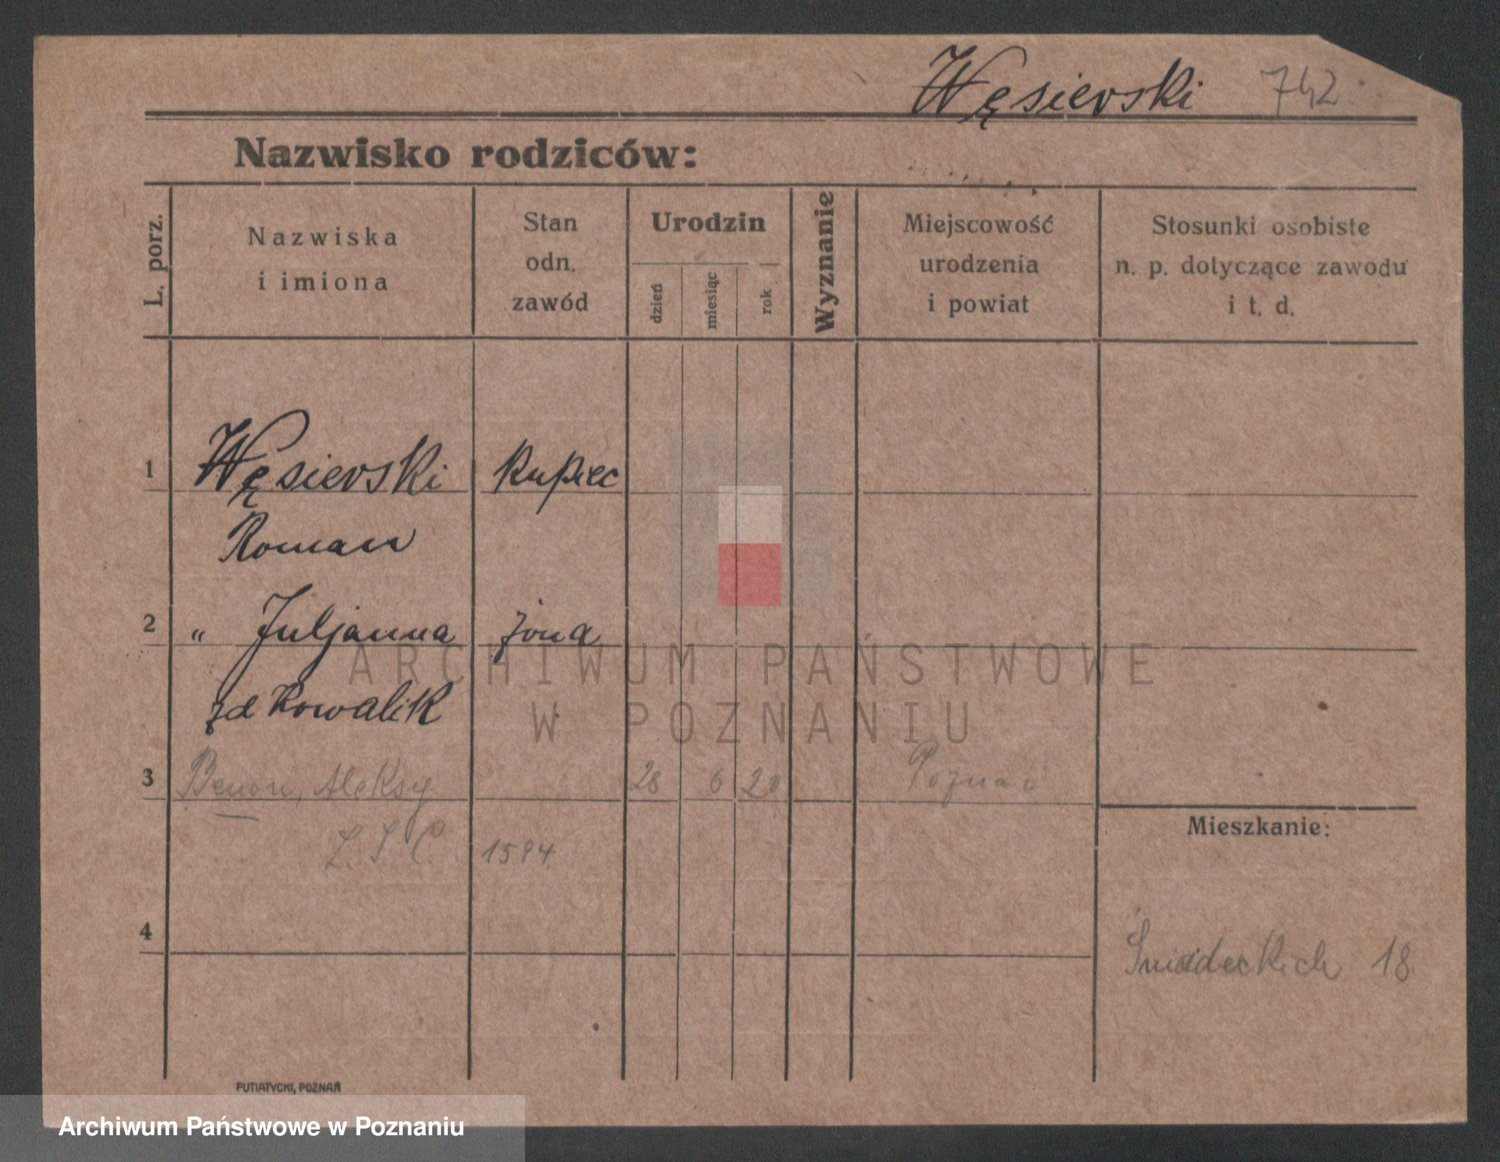 Węsierski 742
Nazwisko rodziców:
L. porz.
Nazwiska
i imiona
Stan
odn.
zawód
Urodzin
dzień
miesiąc
rok
Wyznanie
Miejscowość
urodzenia
i powiat
Stosunki osobiste
n. p. dotyczące zawodu
i t. d.
1 Węsierski kupiec
Roman
2 " Juljanna żona
zd Kowalik
ARCHIWUM PAŃSTWOWE
W POZNANIU
3 Benon, Aleksy 28 6 20 Poznań
1594.
Mieszkanie:
4
Śniadeckich 18.
PUTIATYCKI, POZNAŃ
Archiwum Państwowe w Poznaniu